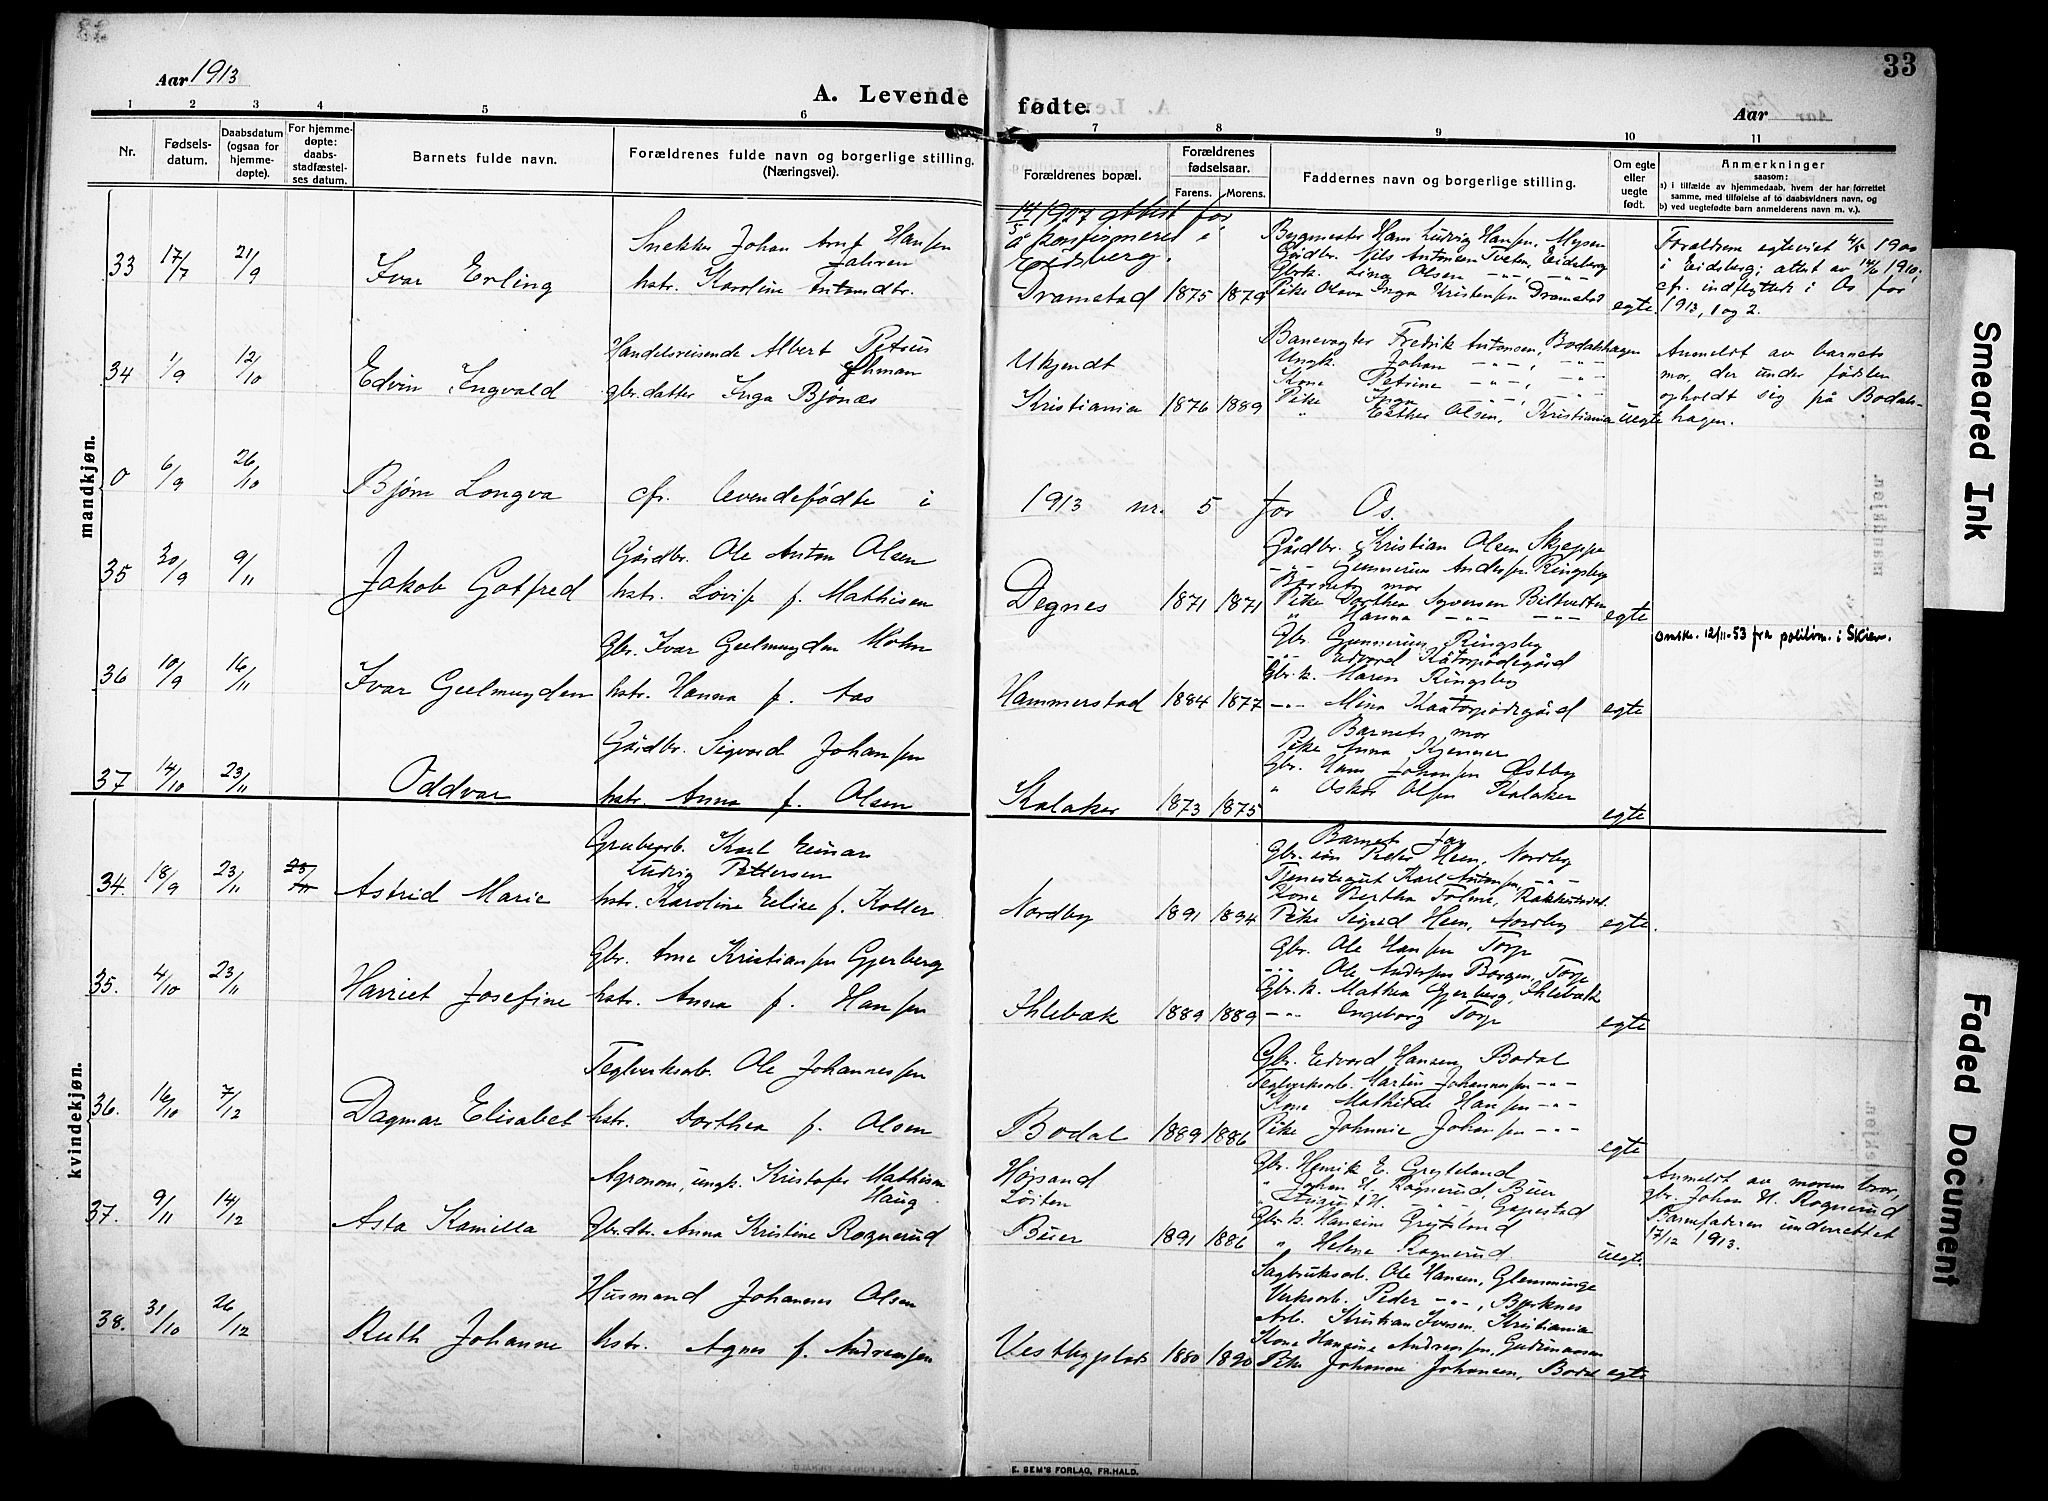 33
Aar 1913
A. Levende fødte.
Aar
1 2 3 4 5 6 7 8 9 10 11
Nr.
Fødsels-
datum.
Daabsdatum
(ogsaa for
hjemme-
døpte).
For hjemme-
døpte:
daabs-
stadfæstel-
ses datum.
Barnets fulde navn.
Forældrenes fulde navn og borgerlige stilling.
(Næringsvei).
Forældrenes bopæl.
Forældrenes
fødselsaar.
Farens. Morens.
Faddernes navn og borgerlige stilling.
Om egte
eller
uegte
født.
Anmerkninger
saasom:
a) i tilfælde av hjemmedaab, hvem der har forrettet
samme, med tilføielse af to daabsvidners navn, og
b) ved uegtefødte barn anmelderens navn m. v.).
mandkjøn.
33 17/7 21/9 Ivar Erling
Snekker Johan Hansen
Jahren
hstr. Karoline
14/5 1927 attest for
å konfirmeres i
Eidsberg.
Dramstad 1875 1879
Bygmester Hans Ludvig Hansen, Mysen
Gårdbr. Nils Antonsen Tveten, Eidsberg
Gbrk. Lina Olsen -"-, -"-
Pike Olava Inga Kristensen Dramstad
egte.
Forældrene egteviet 1900
i Eidsberg; attest av 1910,
cfr. indflyttede i Os for
1913, 1 og 2.
34 1/9 12/10 Edvin Ingvald
Handelsreisende Albert Petrus
Ehman
gbr.datter Inga Bjønæs
Ukjendt
Kristiania 1876 1889
Banevogter Fredrik Antonsen, Bodalshagen
Ungk. Johan -"-, -"-
Kone Petrine -"-, -"-
Pike Inga -"-, -"-
" Esther Olsen, Kristiania
uegte
Anmeldt av barnets
mor, der under fødslen
opholdt sig på Bodals-
hagen.
0 6/9 26/10 Bjørn Longva
cfr. levendefødte i 1913 nr. 5 for Os.
35 30/9 9/11 Jakob Gotfred
Gårdbr. Ole Anton Olsen
hstr. Lovise f. Mathisen
Degnes 1871 1871
Gårdbr. Kristian Olsen Skjeppe
-"- Gunnerius Andersen Ringsby
Barnets mor
Pike Dorthea Syversen Biltvedten
" Hanna -"- -"-
egte
36 10/9 16/11 Ivar Geelmuyden
Gbr. Ivar Geelmuyden Mohn
hstr. Hanna f. Aas
Hammerstad 1884 1877
Gbr. Gunnerius Ringsby
-"- Edvard Kåtorpødegård
Gbr.k. Maren Ringsby
-"- Mina Kaatorpødegård
egte
Omsk. 12/11-53 fra politim. i Skien.
37 14/10 23/11 Oddvar
Gårdbr. Sigvard Johansen
hstr. Anna f. Olsen
Kalaker 1873 1875
Barnets mor
Pike Anna Kjenner
Gbr. Hans Johansen Østby
" Oskar Olsen Kalaker
egte
kvindekjøn.
34. 18/9 23/11 23/11 Astrid Marie
Grubearb. Karl Einar
Ludvig Pettersen
hstr. Karoline Elise f. Koller
Nordby 1891 1894
Barnets far
Gbr. søn Peder Heen, Nordby
Tjenestegut Karl Antonsen -"-
Kone Bertha Holme, Rakkestad
Pike Sigrid Heen, Nordby
egte.
35. 4/10 23/11 Harriet Josefine
Gbr. Arne Kristiansen Gjerberg
hstr. Anna f. Hansen
Ihlebæk 1889 1889
Gbr. Ole Hansen Torp
-"- Ole Andersen Borgen, Torp
Gbr. k. Mathea Gjerberg, Ihlebæk
-"- Ingeborg Torp
egte
36. 16/10 7/12 Dagmar Elisabet
Teglverksarb. Ole Johannessen
hstr. Dorthea f. Olsen
Bodal 1889 1886
Gbr. Edvard Hansen, Bodal
Teglverksarb. Martin Johannessen -"-
Kone Mathilde Hansen -"-
Pike Johanne Johansen -"-
egte
37. 9/11 14/12 Asta Kamilla
Agronom, ungk. Kristofer Mathisen
Haug
Gbrdtr. Anna Kristine Rognerud
Højsand
Løiten
Buer 1891 1886
Gbr. Henrik E. Gryteland
" Johan H. Rognerud, Buer
" August H. " Gapestad
Gbr k. Hansine Grytland
" Helene Rognerud
uegte.
Anmeldt av morens bror,
gbr. Johan H. Rognerud
Barnefaderen underrettet
17/12 1913.
38. 31/10 26/12 Ruth Johanne
Husmand Johannes Olsen
hstr. Agnes f. Andreasen
Vestbyplads 1880 1890
Sagbruksarb. Ole Hansen, Glemminge
Verksarb. Peder -"-, Byrknes
Arb. Kristian Iversen, Kristiania
Kone Hansine Andreassen,
Pike Johanne Johansen, Bodal
egte
E. SEM'S FORLAG, FR.HALD.
Smeared Ink
Faded Document